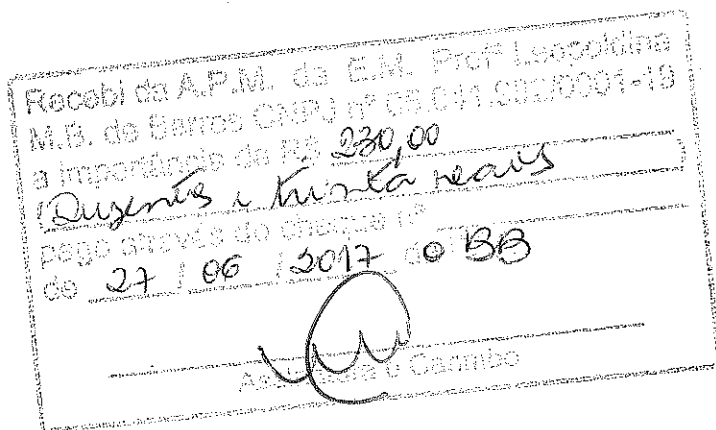 Recebi da A.P.M. da E.M. Profª Leopoldina
M.B. de Barros CNPJ nº
a importância de R$ 230,00
(Duzentos e trinta reais
pago através do cheque nº
de 27 / 06 / 2017 BB
Assinatura e Carimbo